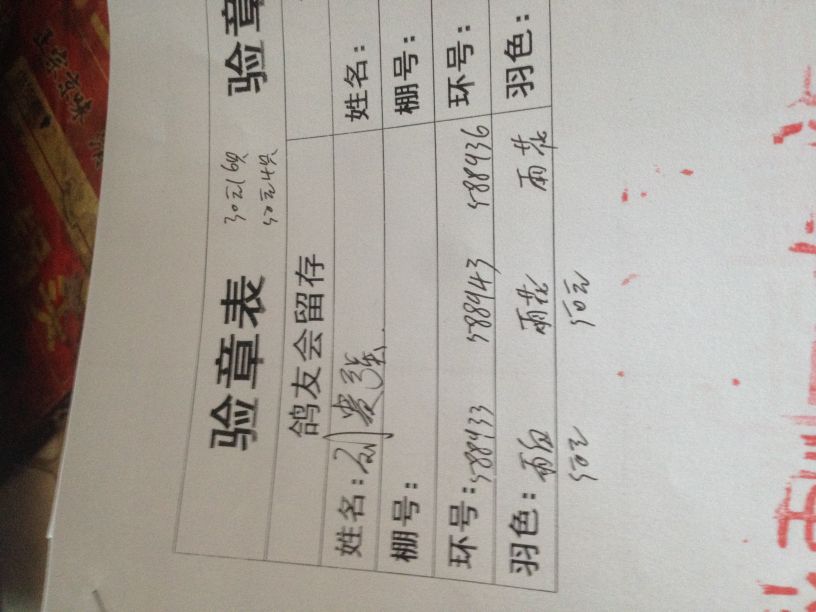 验章表 30元16只
50元4只
鸽友会留存
姓名：刘贵强
棚号：
环号：588933 588943 588936
羽色：雨白 雨花 雨花
50元 50元
验章
姓名：
棚号：
环号：
羽色：